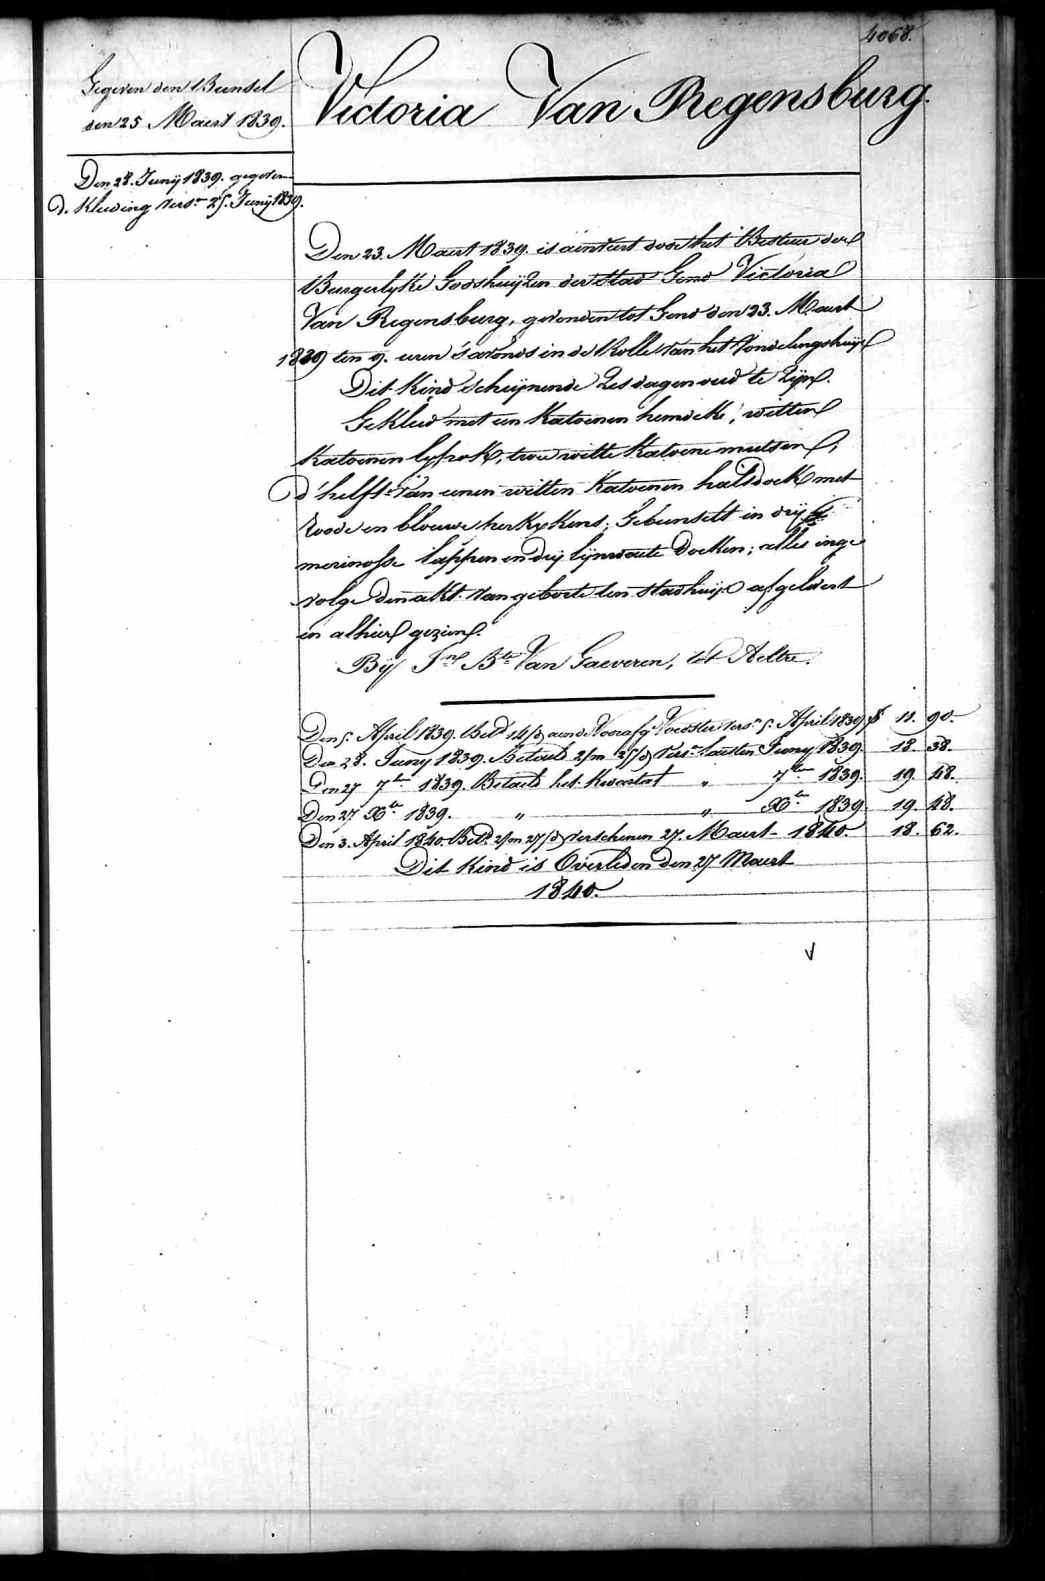 4068.
Gegeven den Bunsel
den 25 Maert 1839.
Den 28. Junij 1839. gegeven
d. Kleeding vers.n 25. Junij 1839.
Victoria Van Regensburg.
Den 23. Maert 1839. is aenveert door het Bestuer der
Burgerlyke Godshuijzen der Stad Gend Victoria
Van Regensburg, gevonden tot Gend den 23. Maert
1839 ten 9. uren s'avonds in de Rolle van het Vondelingshuijs
Dit Kind scheijnende zes dagen oud te zijn.
Gekleed met een Katoenen hemdeke, witten
Katoenen lyfrok, twee witte Katoene mutsen,
d'helft van eenen witten Katoenen halsdoek met
roode en blouwe perkxkens; Gebunselt in drij
merinosse lappen en drij lijnwaete doeken; alles inge
volge den akt van geboorte ten stadhuijse afgelevert
en alhier gezien.
Bij J.n B.te Van Gaeveren, tot Aeltre.
Den 5. April 1839. Bet.d 14/d aen de Voorafg. Voedster vers.n 5. April 1839 f 11. 90.
Den 28. Juny 1839. Betaeld 2/m 25/d vers.n laesten Juny 1839. 18. 38.
Den 27 7.ber 1839. Betaeld het Kwartael " 7.ber 1839. 19. 48.
Den 27 X.ber 1839. " " X.ber 1839. 19. 48.
Den 3. April 1840. Bet.d 2/m 27/d verschenen 27. Maert 1840. 18. 62.
Dit Kind is Overleden den 27 Maert
1840.